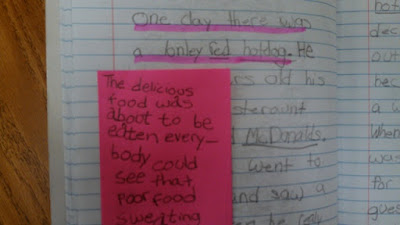 One day there was
a lonley red hotdog. He
old his
McDonalds.
went to
and saw a
The delicious
food was
about to be
eatten every-
body could
see that
poor food
sweating
hot
des
out
bec
a w
when
was
for
gues